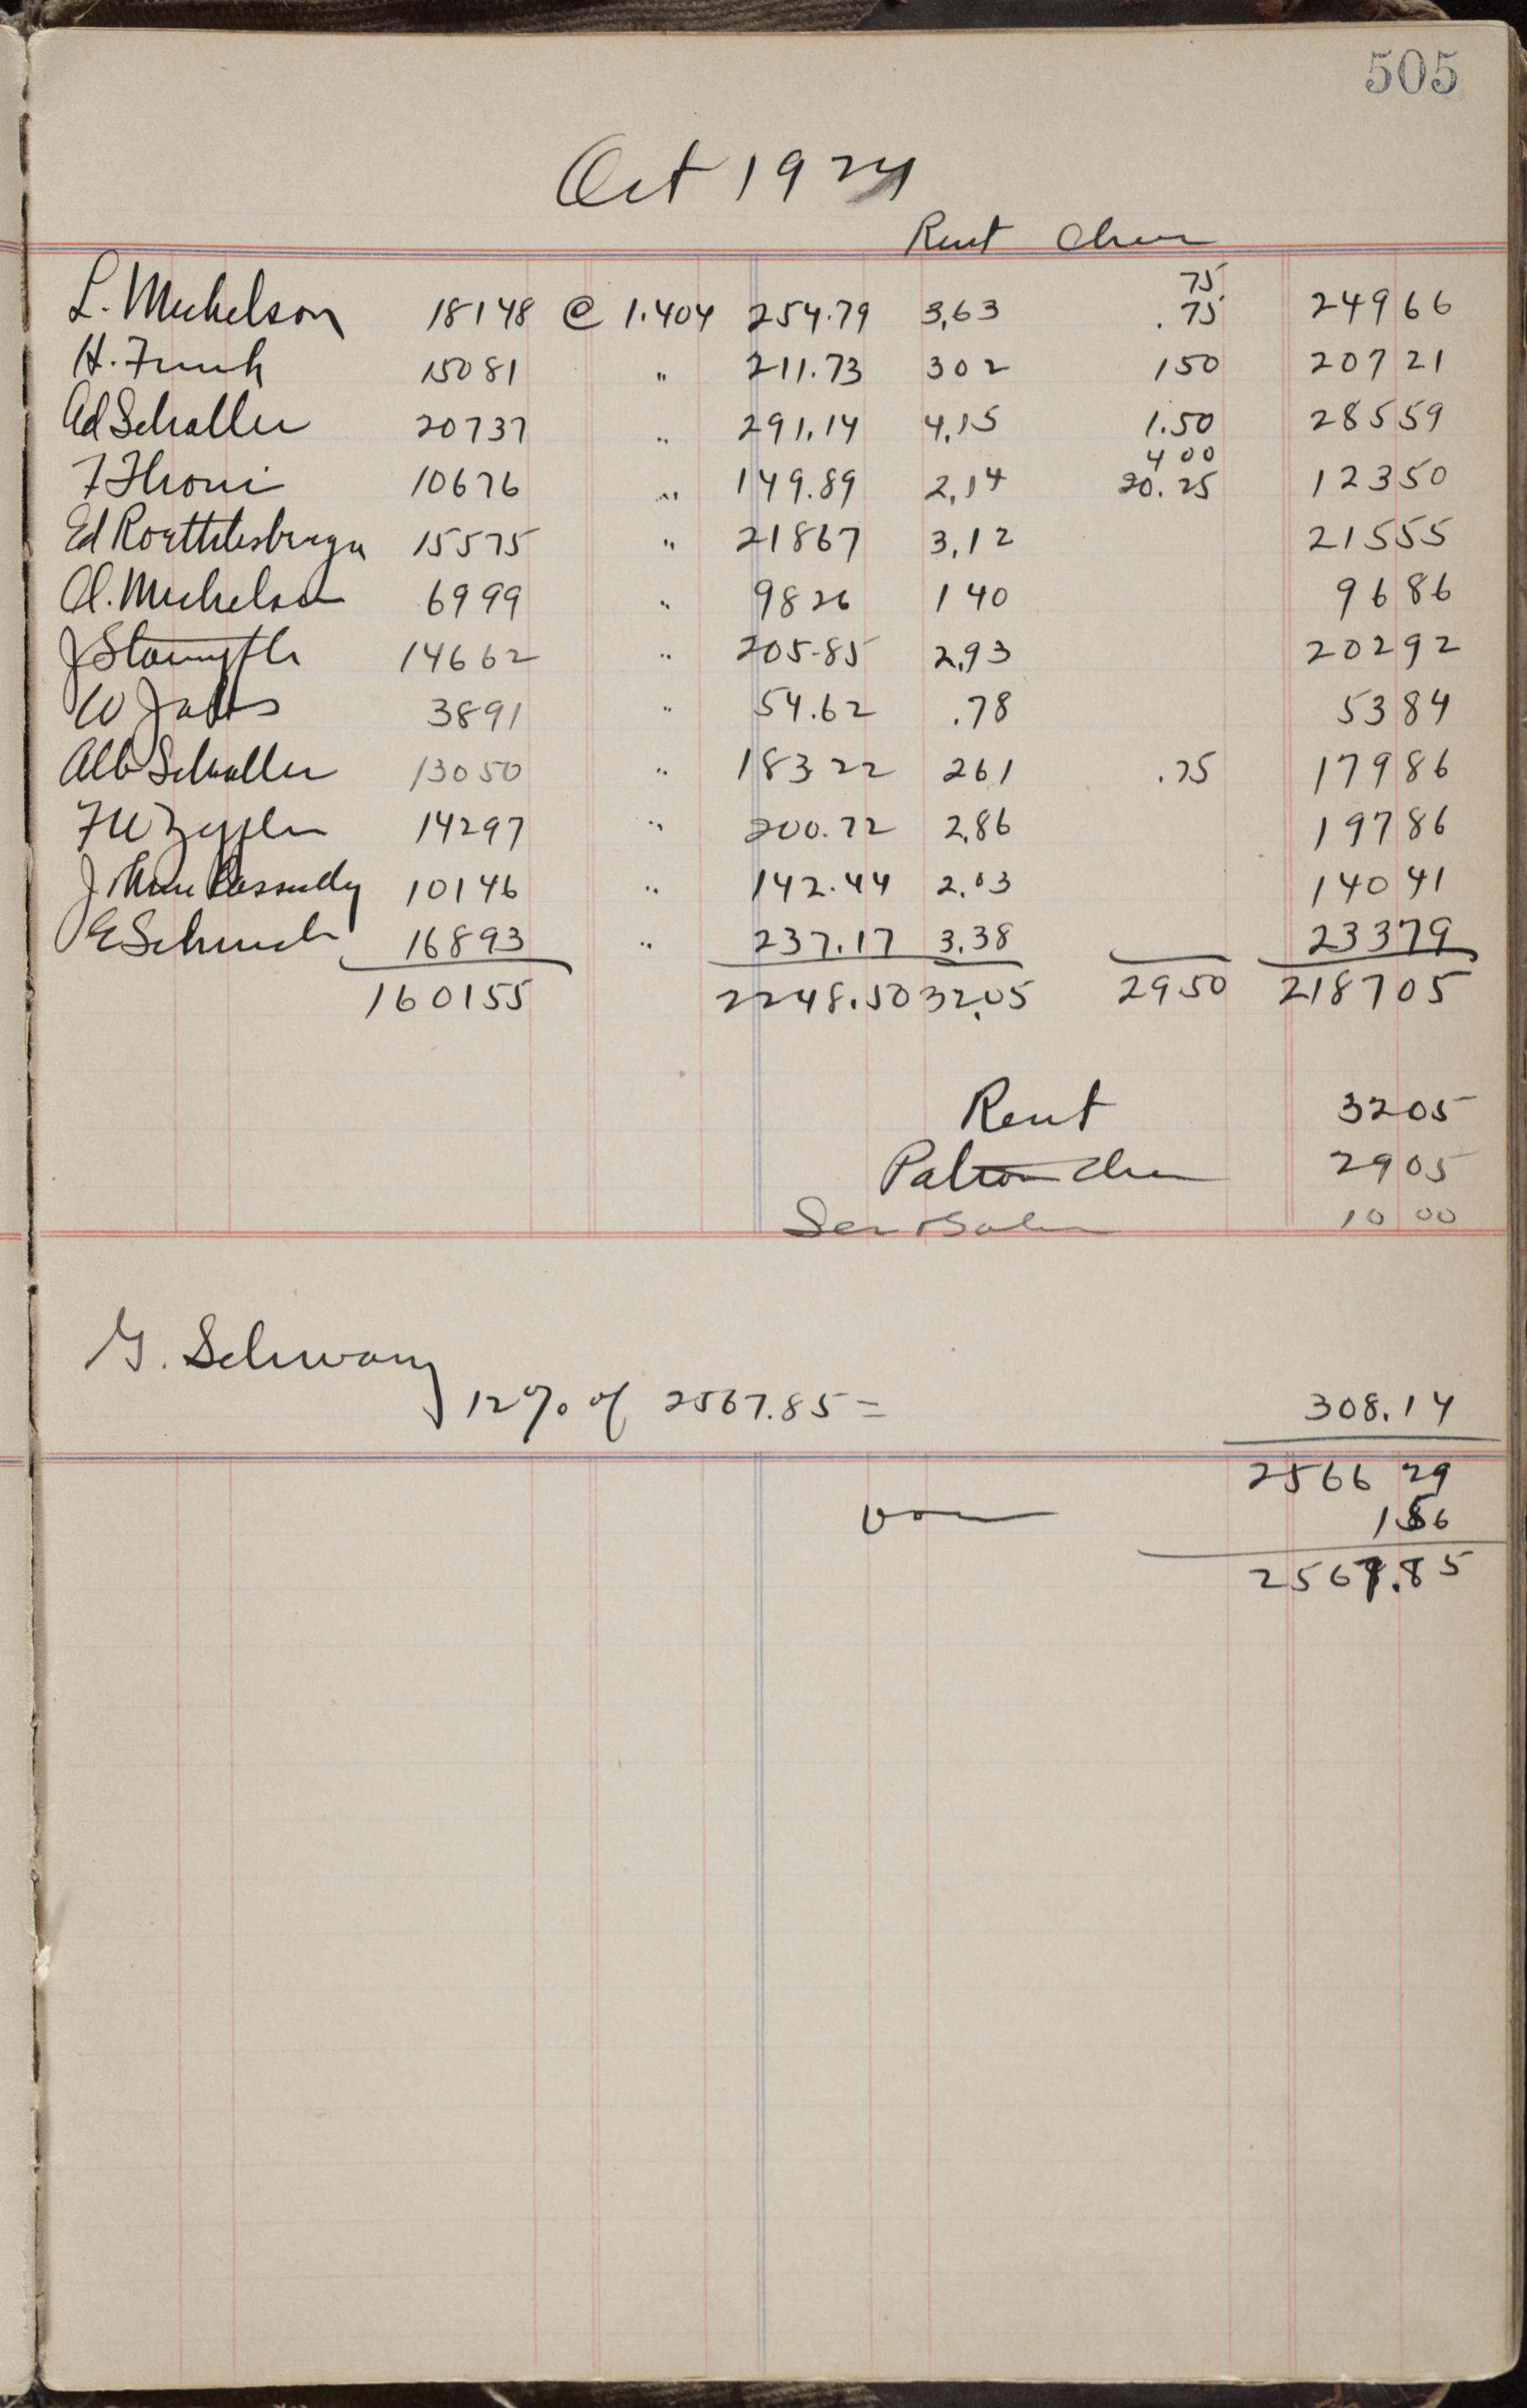 505
Oct 1924
Rent Chee
75
L. Michelson 18148 @ 1.404 254.79 3,63 .75 249 66
H. Funk 15081 " 211.73 302 150 207 21
Ad Schaller 20737 " 291,14 4,15 1.50 285 59
400
F Thoni 10676 " 149.89 2,14 20.25 123 50
Ed Roethlisberger 15575 " 21867 3,12 215 55
A. Michelson 6999 " 9826 140 96 86
J Stampfli 14662 " 205-85 2,93 202 92
W 3891 " 54.62 .78 53 84
Alb Schaller 13050 " 183 22 261 .75 179 86
F W 14297 " 200.72 2,86 197 86
J 10146 " 142.44 2.03 140 41
E 16893 " 237.17 3.38 233 79
160155 2248.50 32.05 2950 2187 05
Rent 32 05
Patron Chee 29 05
10 00
G. Schwarz
12% of 2567.85 = 308.14
2566 29
1 56
2567.85